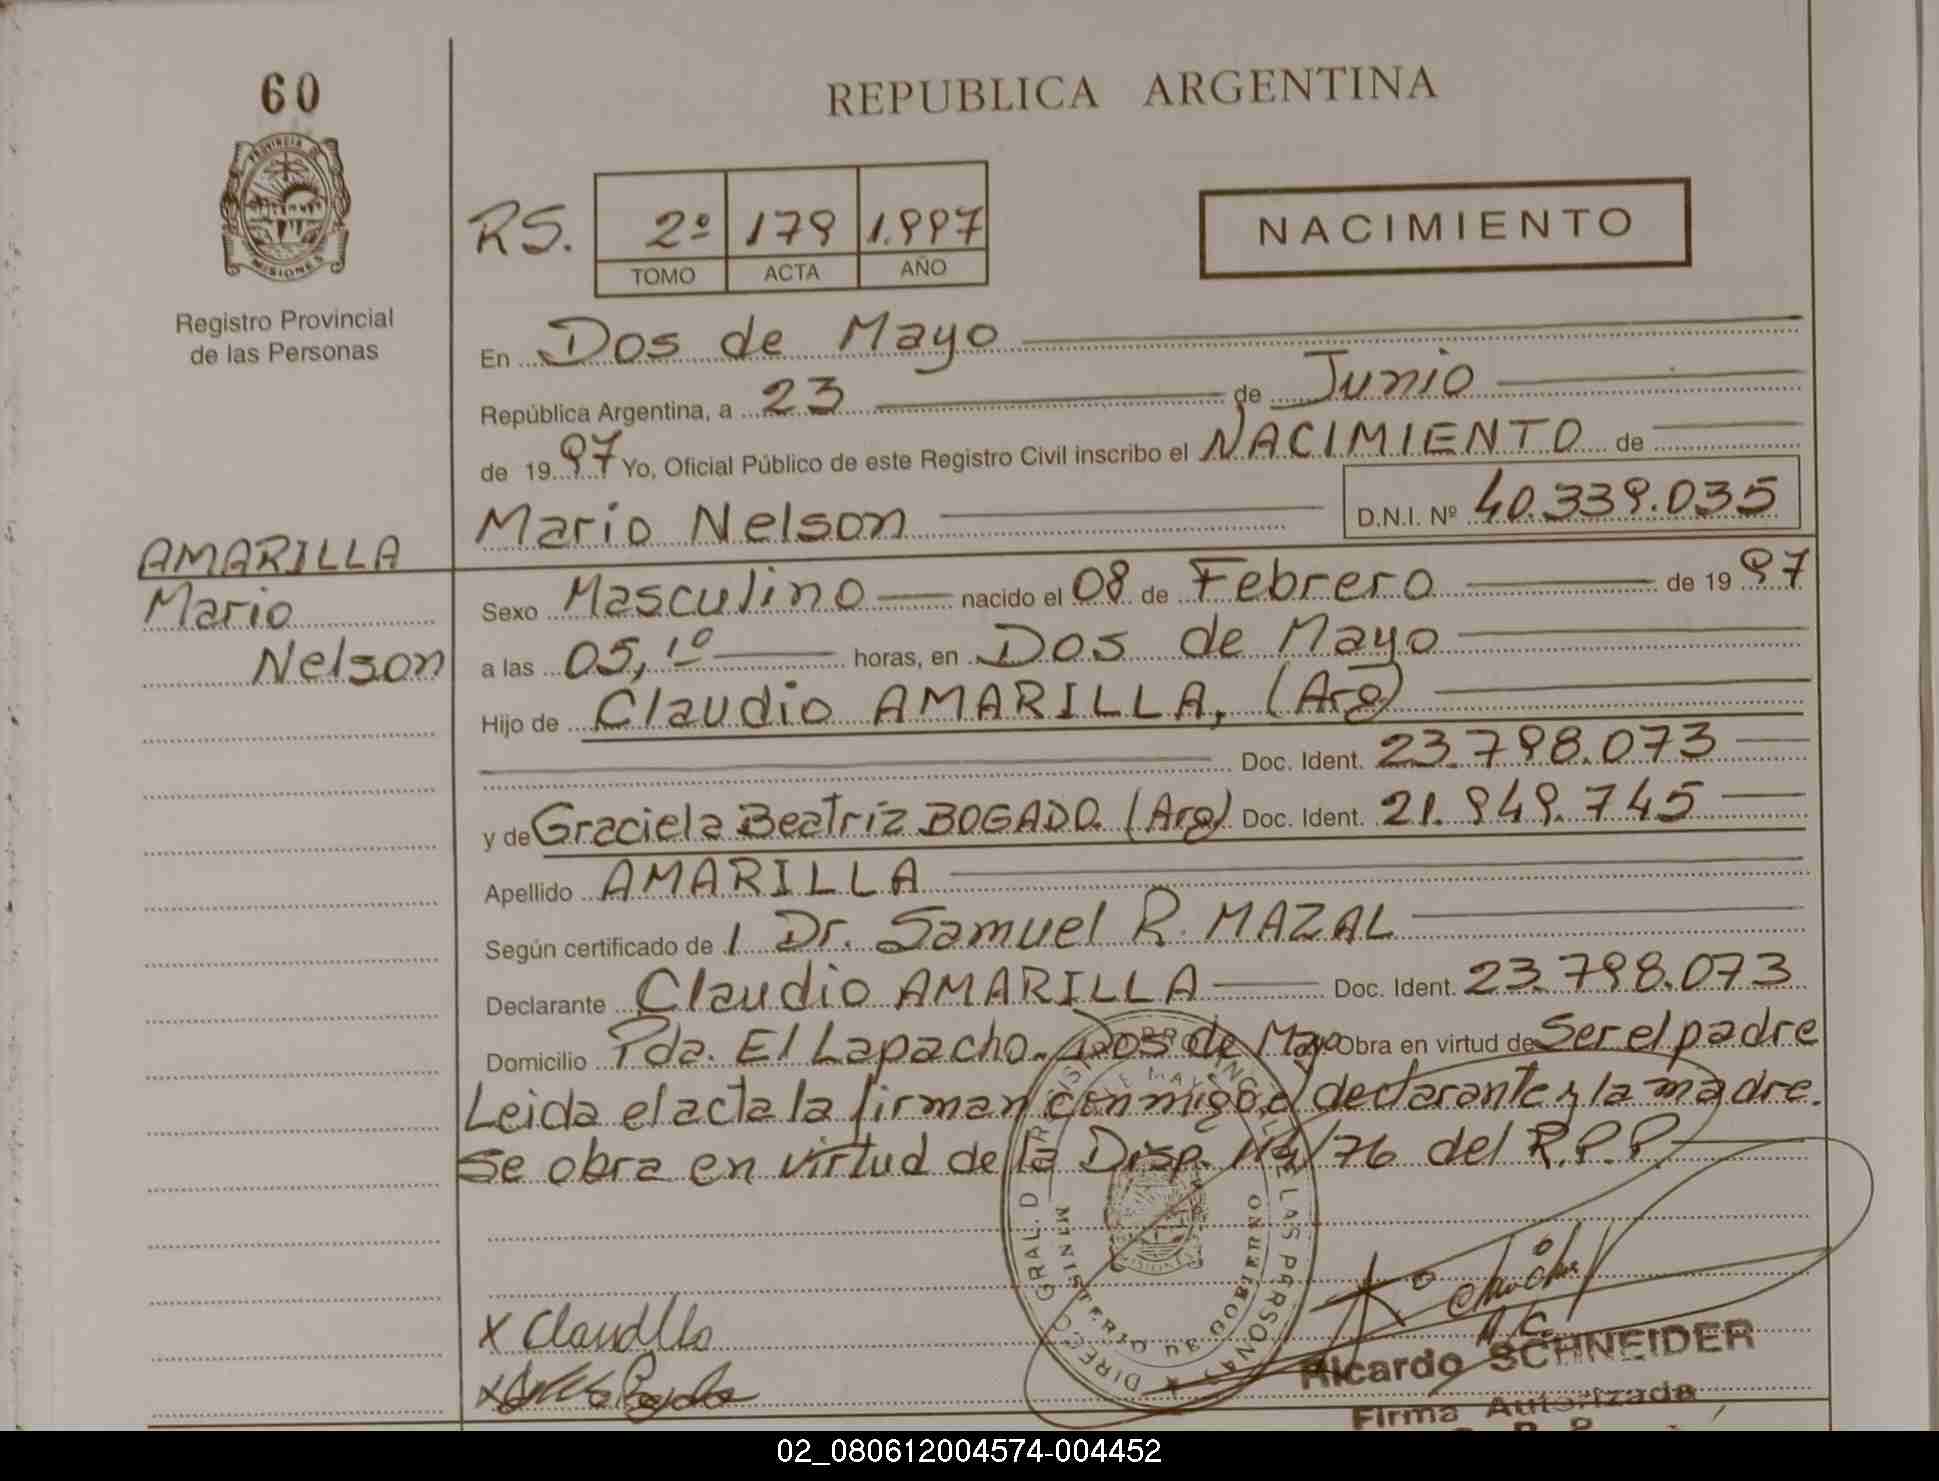 60
REPUBLICA ARGENTINA
PROVINCIA DE
MISIONES
Registro Provincial
de las Personas
RS.
2º 179 1.997
TOMO ACTA AÑO
NACIMIENTO
En Dos de Mayo
República Argentina, a 23 de Junio
de 1997 Yo, Oficial Público de este Registro Civil inscribo el NACIMIENTO de
Mario Nelson D.N.I. Nº 40.339.035
AMARILLA
Mario
Nelson
Sexo Masculino nacido el 08 de Febrero de 1997
a las 05,10 horas, en Dos de Mayo
Hijo de Claudio AMARILLA, (Arg)
Doc. Ident. 23.798.073
y de Graciela Beatriz BOGADO (Arg) Doc. Ident. 21.949.745
Apellido AMARILLA
Según certificado de l Dr. Samuel R. MAZAL
Declarante Claudio AMARILLA Doc. Ident. 23.798.073
Domicilio Pda. El Lapacho. Dos de Mayo Obra en virtud de Ser el padre
Leida el acta la firman conmigo el declarante y la madre.
Se obra en virtud de la Disp. /76 del R.P.P
MINISTERIO DE GOBIERNO
X
X
Ricardo SCHNEIDER
Firma Autorizada
02_080612004574-004452